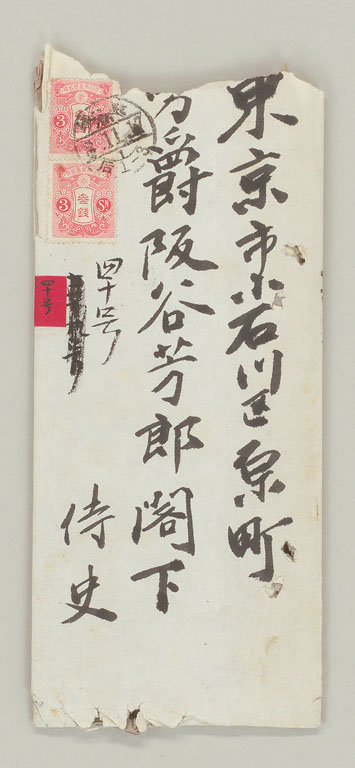 東京市小石川区原町
男爵阪谷芳郎閣下
侍史
四十号
四十号
3
参銭
3 Sn